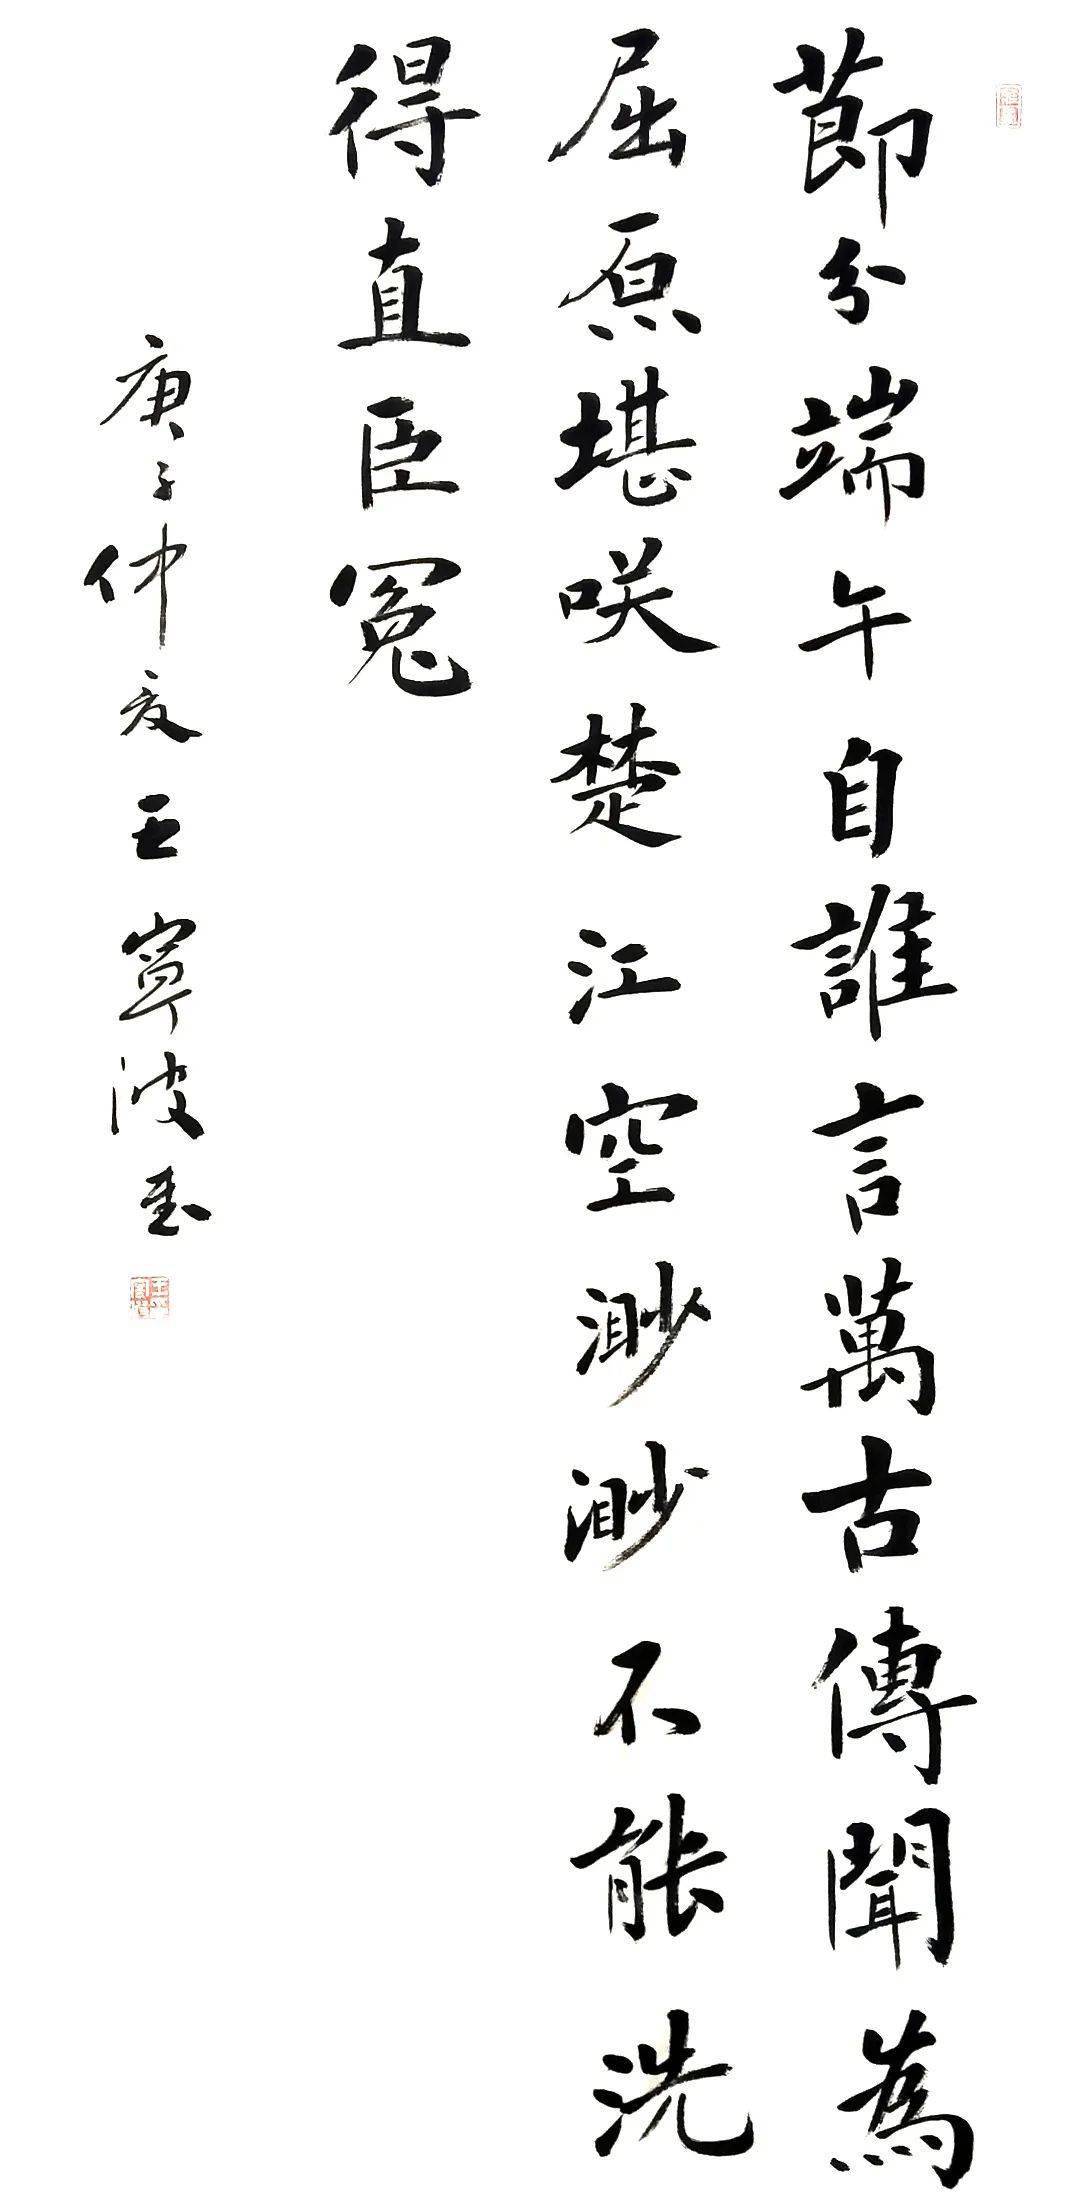 節分端午自誰言萬古傳聞為
屈原堪咲楚江空渺渺不能洗
得直臣冤
庚子仲夏王寧波書